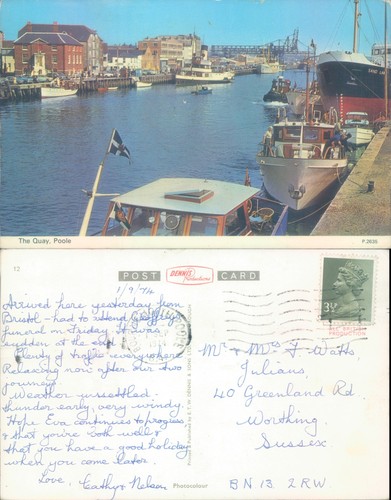 The Quay, Poole
P.2635
12
POST
DENNIS
Productions
CARD
1/9/74
Arrived here yesterday from
Bristol - had to attend Geoffrey's
funeral on Friday. It was
sudden at the end.
Plenty of traffic everywhere.
Relaxing now after our two
journeys.
Weather unsettled -
thunder early, very windy.
Hope Eva continues to progress
& that you're both well &
that you have a good holiday
when you come later.
Love, Cathy & Nelson
3½P
Mr & Mrs F. Watts,
Julians,
40 Greenland Rd
Worthing
Sussex
BN 13 2RW
Photocolour